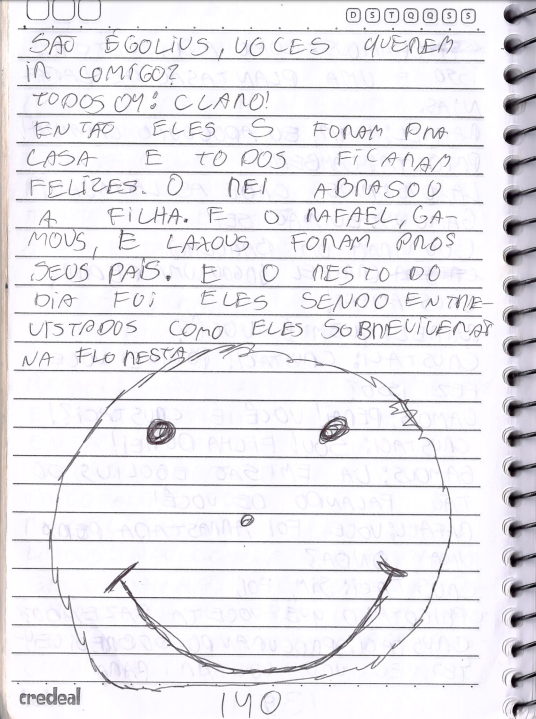 D S T Q Q S S
SÃO ÉGOLIUS, VOCES QUEREM
IR COMIGO?
TODOS OY: CLARO!
ENTÃO ELES S FORAM PRA
CASA E TODOS FICARAM
FELIZES. O REI ABRASOU
A FILHA. E O RAFAEL, GA-
MOUS, E LAXOUS FORAM PROS
SEUS PAÍS. E O RESTO DO
DIA FOI ELES SENDO ENTRE-
VISTADOS COMO ELES SOBREVIVERAM
NA FLORESTA
credeal
140